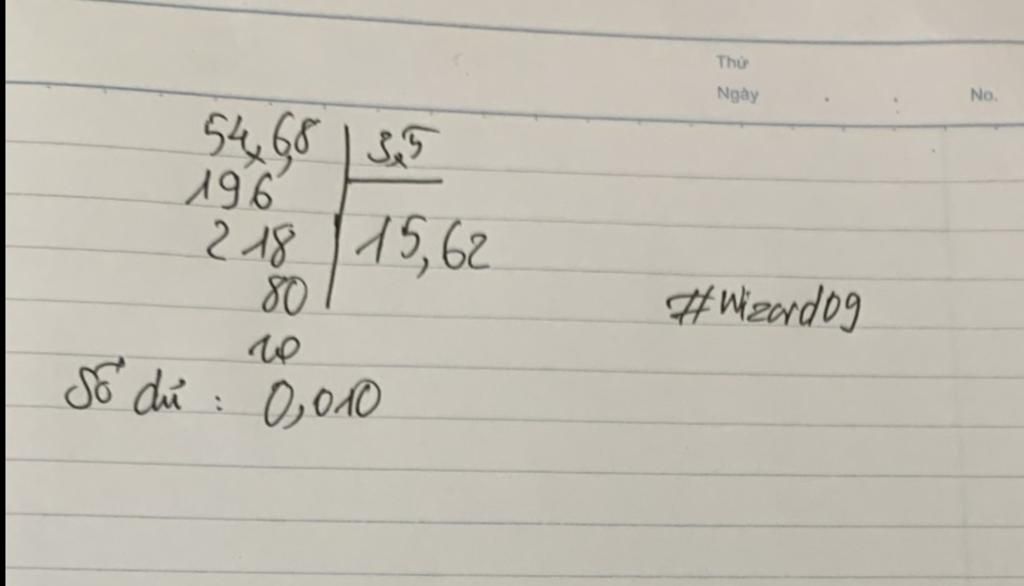 Thứ
Ngày . . No.
54,68 3,5
196
218 15,62
80
#Wizard09
10
Số dư : 0,010